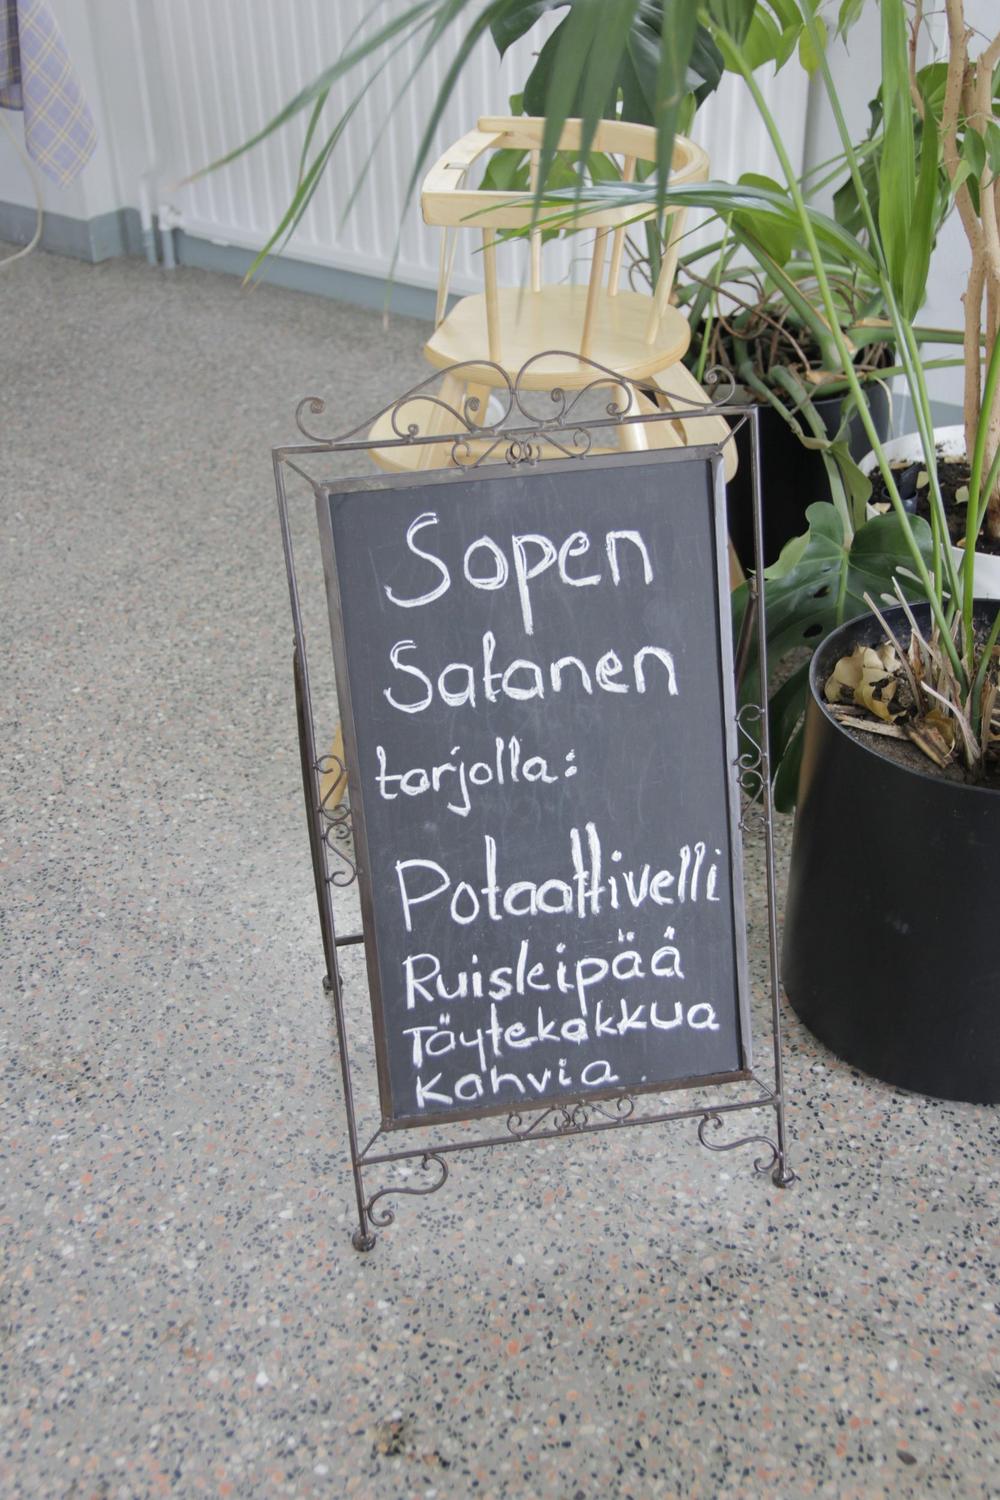 Sopen
Satanen
tarjolla:
Potaattivelli
Ruisleipää
Täytekakkua
Kahvia.